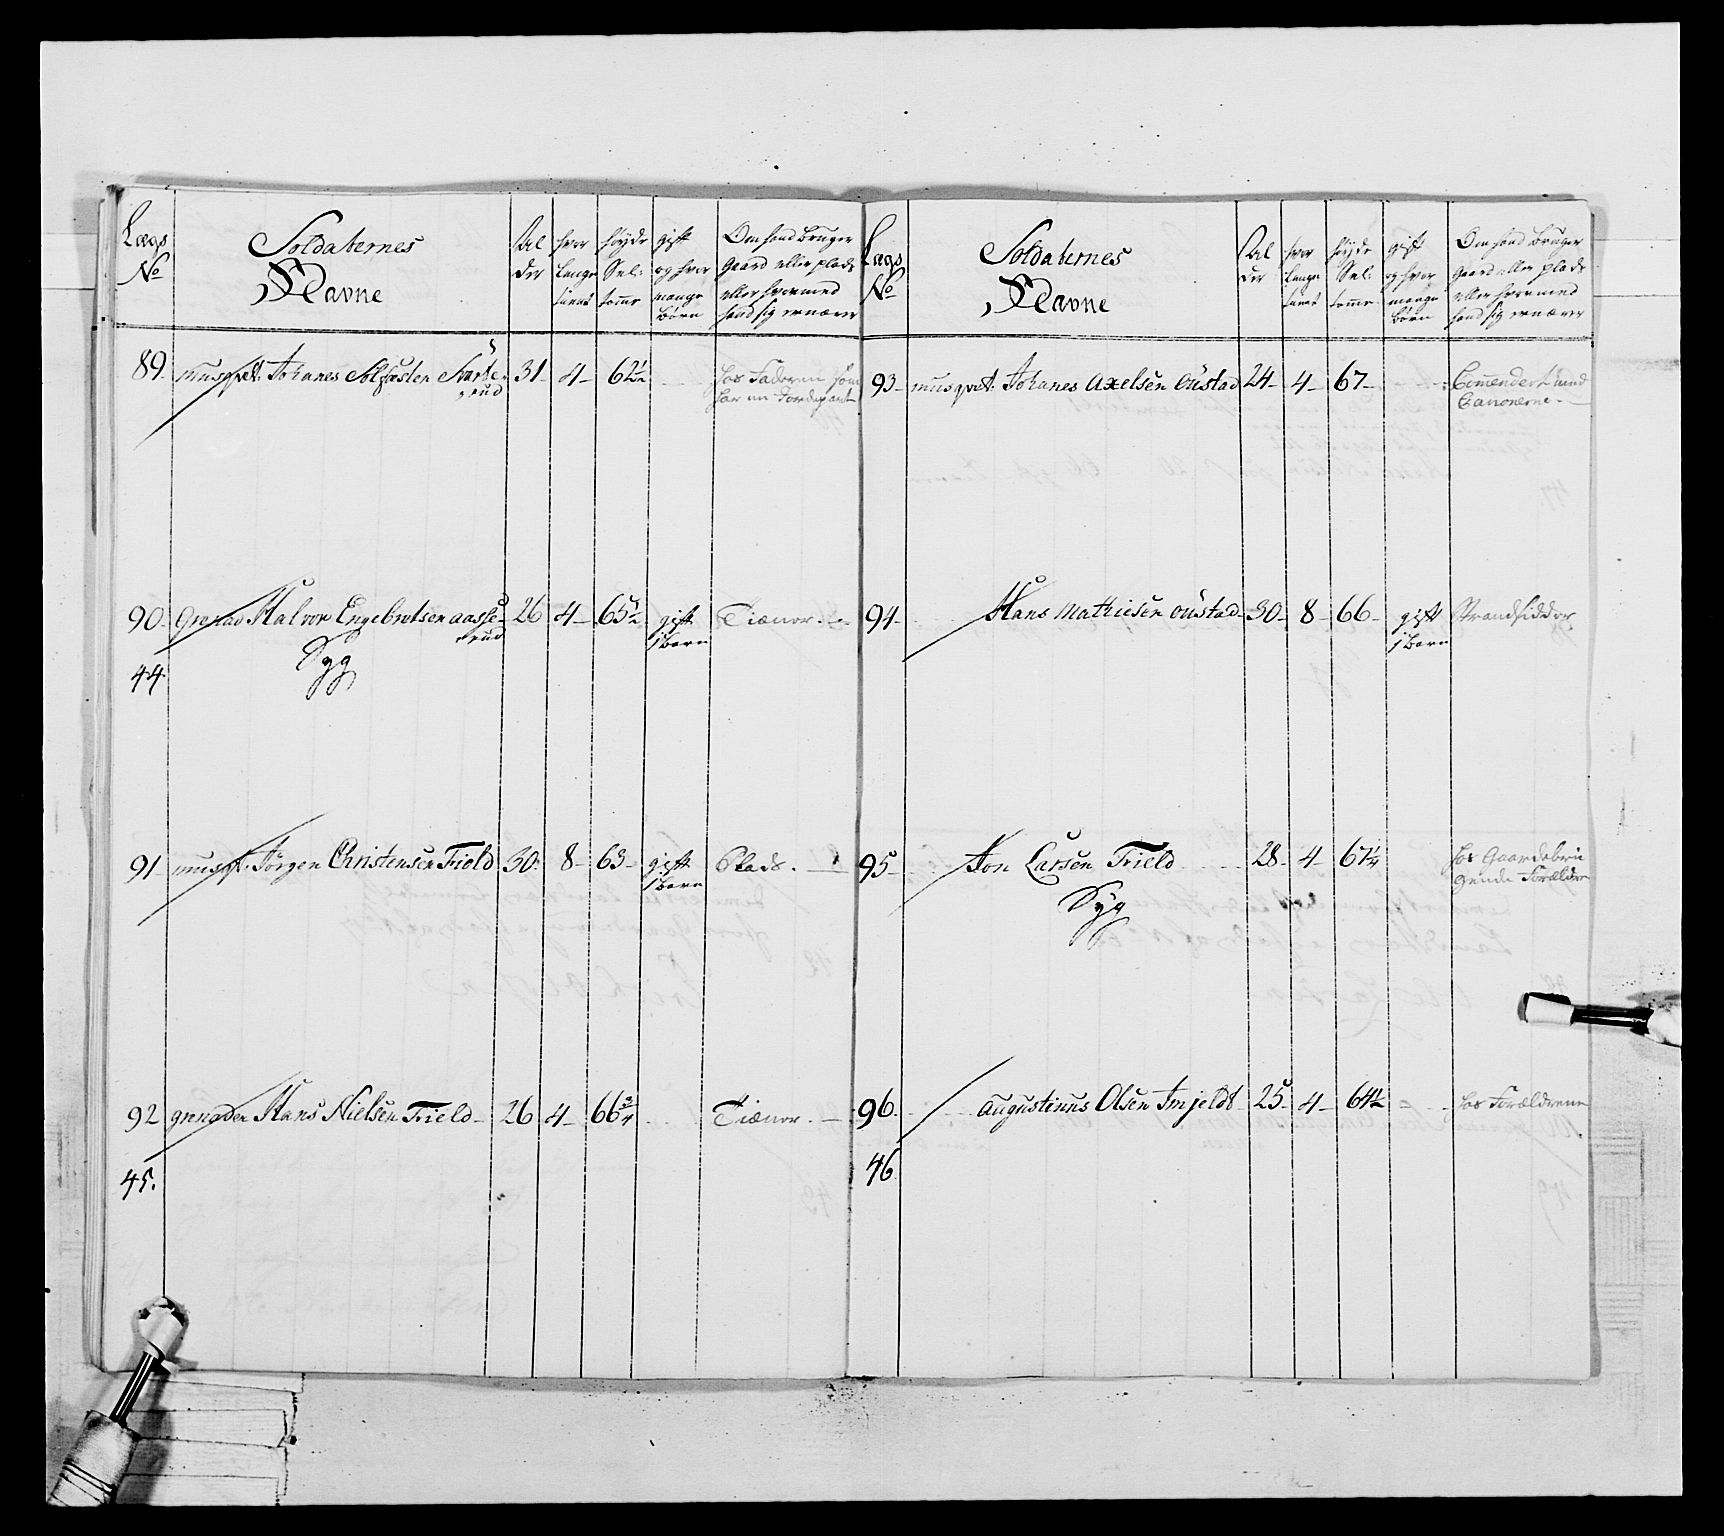 Lægs
No
Soldaternes
Navne
Al
der
hvor
længe
tient
høyde
Sel:
tomr
gift
og hvor
mange
børn
Om hand bruger
Gaard eller plads
eller hvormed
hand sig ernærer
89. musqvt. Johanes Sverte- 31 - 4 - 62½
rud
hos Faderen som
har en Jordepart
90. Grenad Halvor Engebretsen aasse- 26 4 - 65½ gift Tiæner.
rud
1 barn
Syg
44.
91 musqt. Jörgen Christensen Field 30. 8 - 63 - gift Plads.
1 barn
92 grenader Hans Nielsen Field - 26 4 - 66¾ Tiæner.
45.
Lægs
No
Soldaternes
Navne
Al
der
hvor
længe
tient
høyde
Sel:
tomr
gift
og hvor
mange
børn
Om hand bruger
Gaard eller plads
eller hvormed
hand sig ernærer
93 - musqvt. Johanes Axelsen Oustad 24 - 4 - 67 - Commendert med
Canonerne.
94 - Hans Mathiesen Oustad - 30 - 8 - 66 - gift Strandsidder
1 barn
95 - Jon Larsen Field 28 - 4 - 67¼ hos Gaardebru
gende Forældre
Syg
96. Augustinus Olsen Imjeldt 25 - 4 - 64½ - hos Forældrene
46